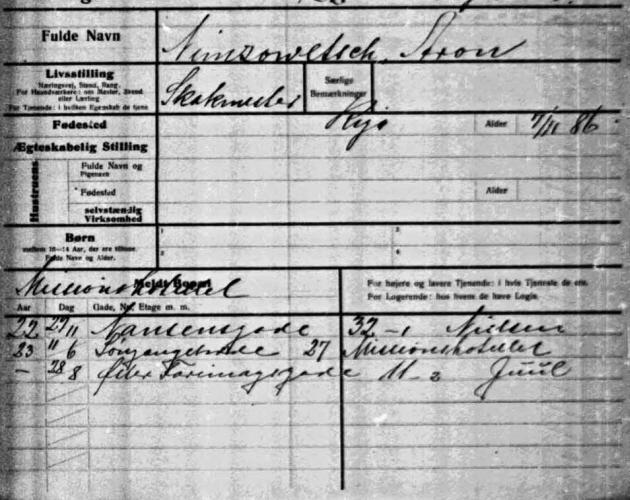 Fulde Navn Nimzowitsch, Aron
Livsstilling
Næringsvej, Stand, Rang.
For Haandværkere: om Mester, Svend
eller Lærling
For Tjenende: i hvilken Egenskab de tjene
Skakmester
Særlige
Bemærkninger
Fødested Riga Alder 7/11 86
Ægteskabelig Stilling
Hustruens
Fulde Navn og
Pigenavn
Fødested Alder
selvstændig
Virksomhed
Børn
mellem 10-14 Aar, der ere tilmeldte
Fulde Navn og Alder.
1 3
2 4
Missionshotel
meldt Bopæl
For højere og lavere Tjenende: i hvis Tjeneste de ere.
For Logerende: hos hvem de have Logis.
Aar Dag Gade, Nr., Etage m. m.
22 27 11 Nansensgade 32 - 1 Nielsen
23 11 6 Løngangstræde 27 Missionshotellet
— 28 8 Øster Farimagsgade 11 - 2 Juul